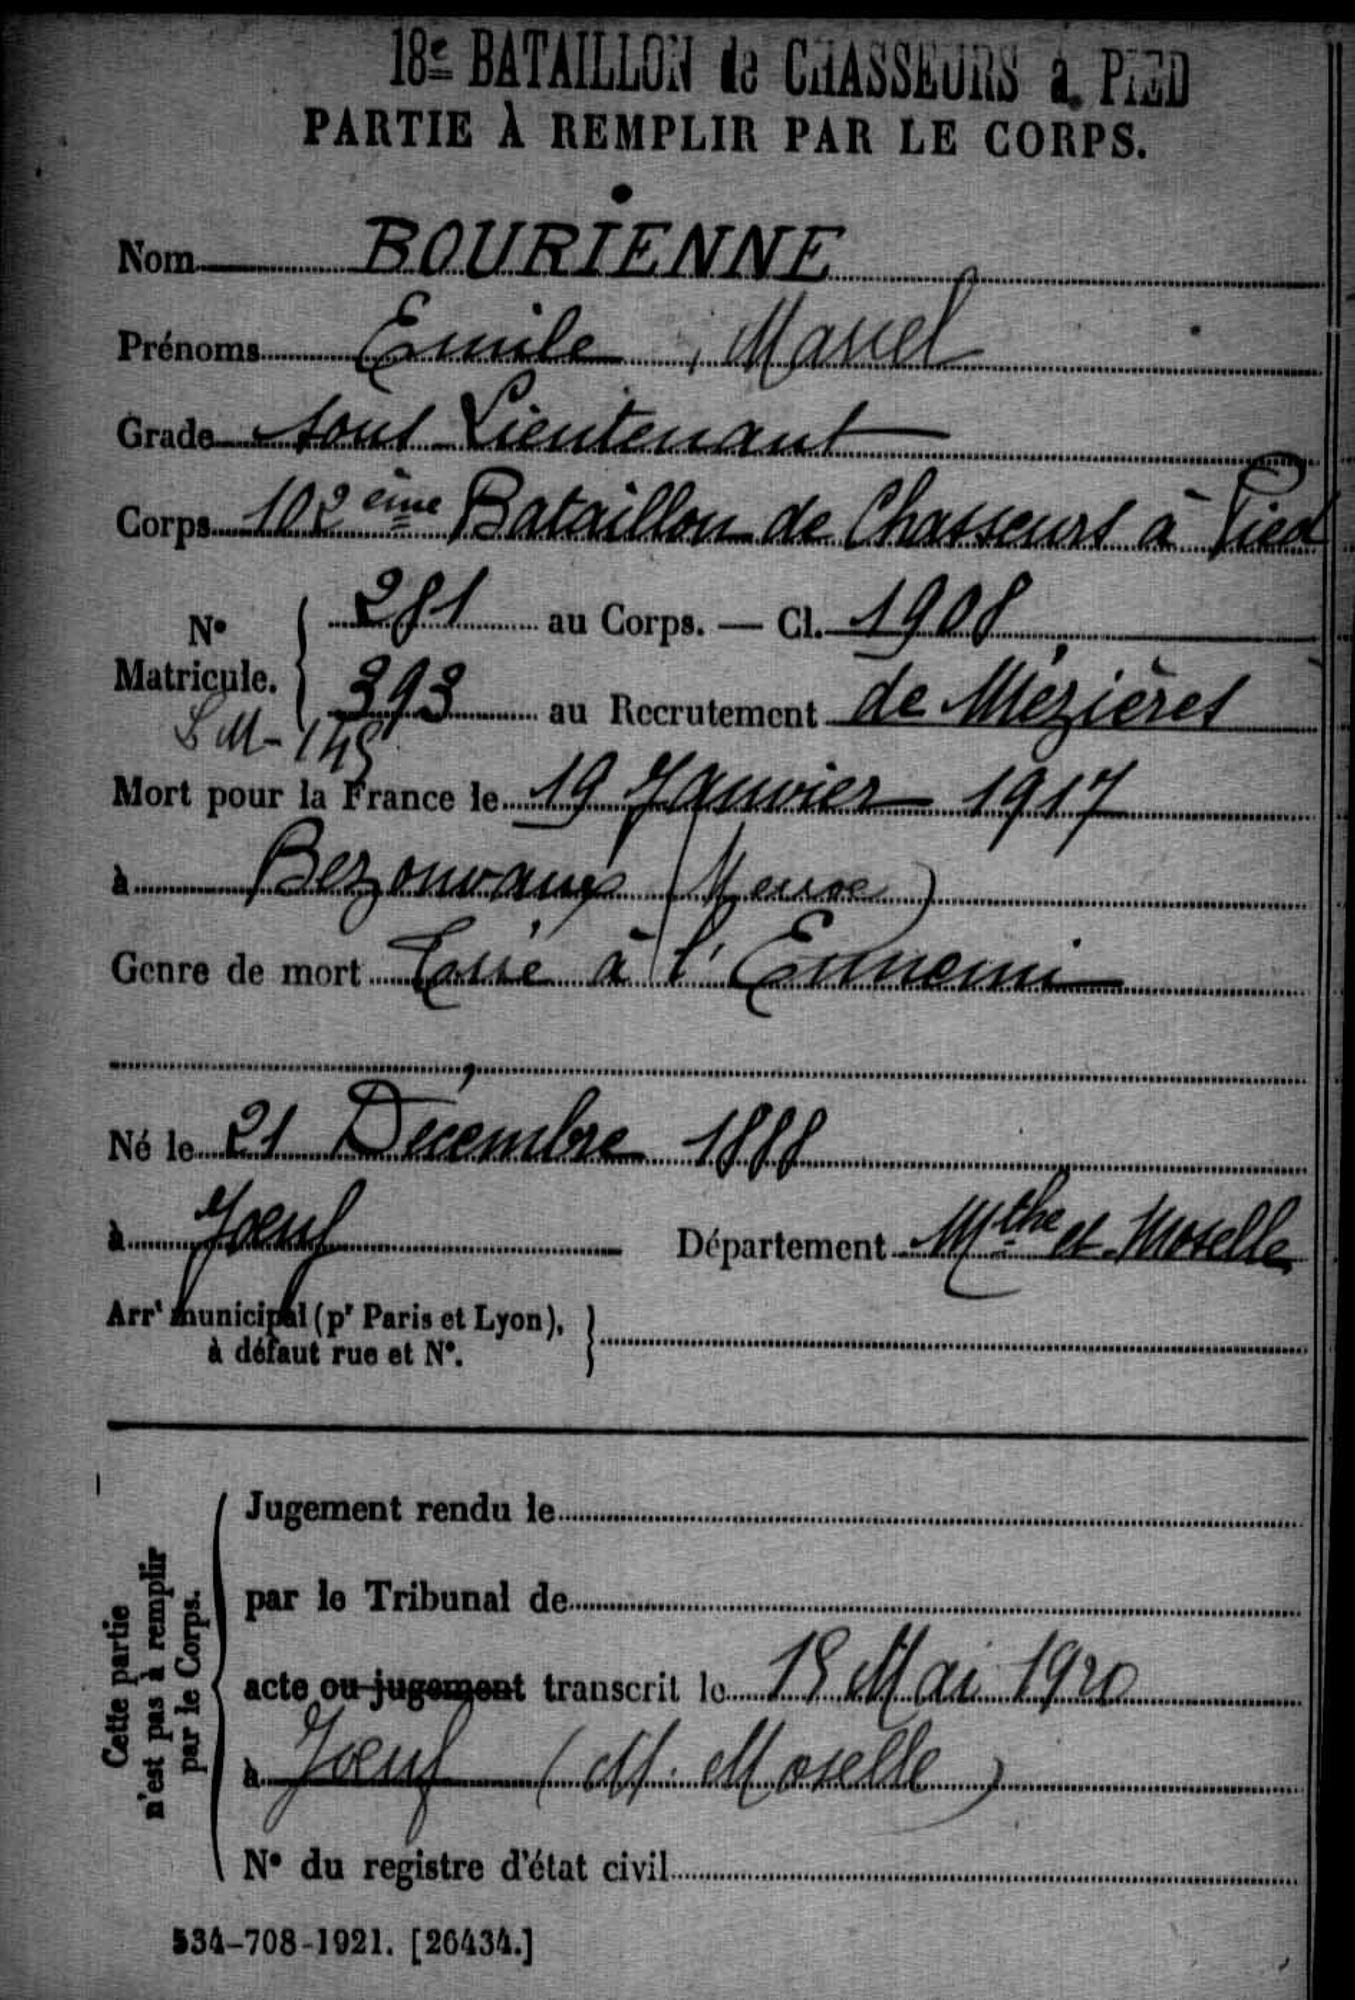 18e BATAILLON de CHASSEURS à PIED
PARTIE À REMPLIR PAR LE CORPS.
Nom BOURIENNE
Prénoms Emile, Marcel
Grade Sous Lieutenant
Corps 102ème Bataillon de Chasseurs à Pied
No Matricule. 281 au Corps. — Cl. 1908
393 au Recrutement de Mézières
Mort pour la France le 19 Janvier 1917
à Bezonvaux (Meuse)
Genre de mort Tué à l'Ennemi
Né le 21 Décembre 1888
à Joeuf Département Mthe et Moselle
Arrt municipal (pr Paris et Lyon),
à défaut rue et No.
Cette partie
n'est pas à remplir
par le Corps.
Jugement rendu le
par le Tribunal de
acte ou jugement transcrit le 15 Mai 1920
à Joeuf (M. Moselle)
No du registre d'état civil
534-708-1921. [26434.]